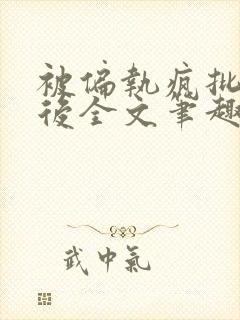 被偏執瘋批
後全文筆趣
武中氣